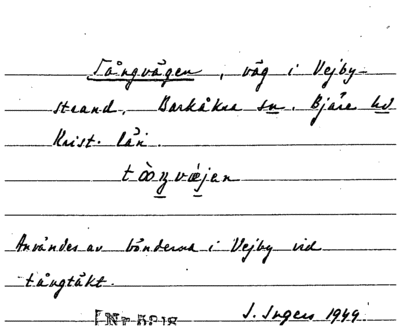 Tångvägen, väg i Vejby-
strand, Barkåkra sn. Bjäre hd
Krist. län.
Användes av bönderna i Vejby vid
tångtäkt.
I. Ingers 1949.